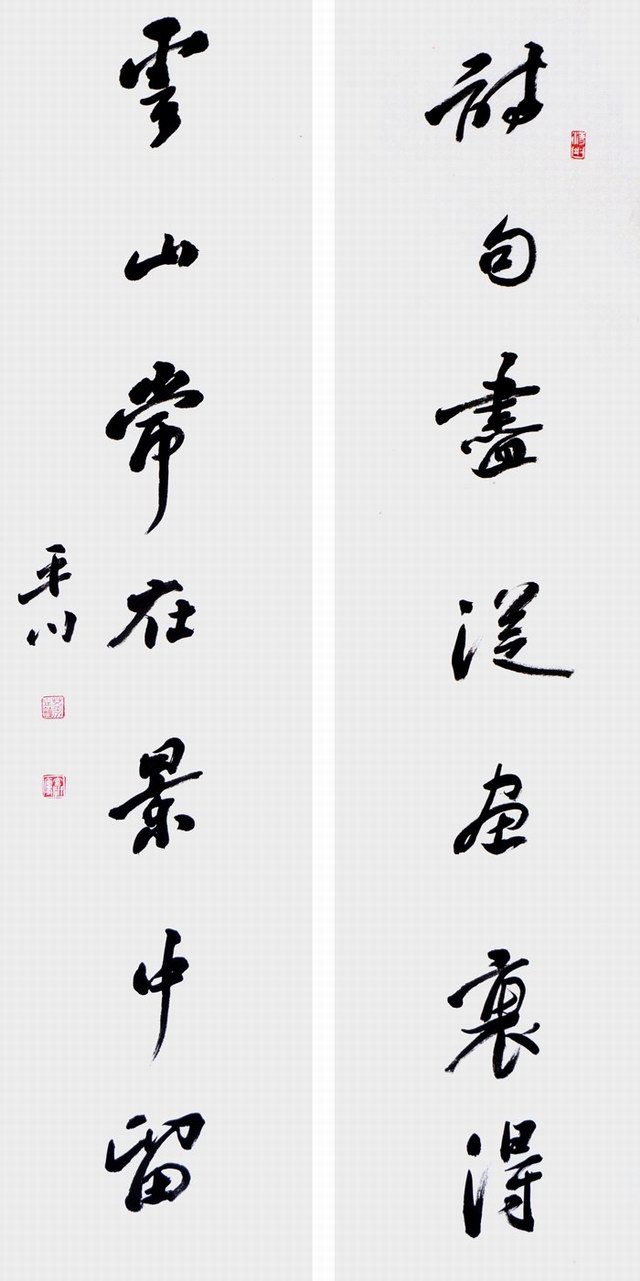 詩句盡從畫裏得
雲山常在景中留
平川